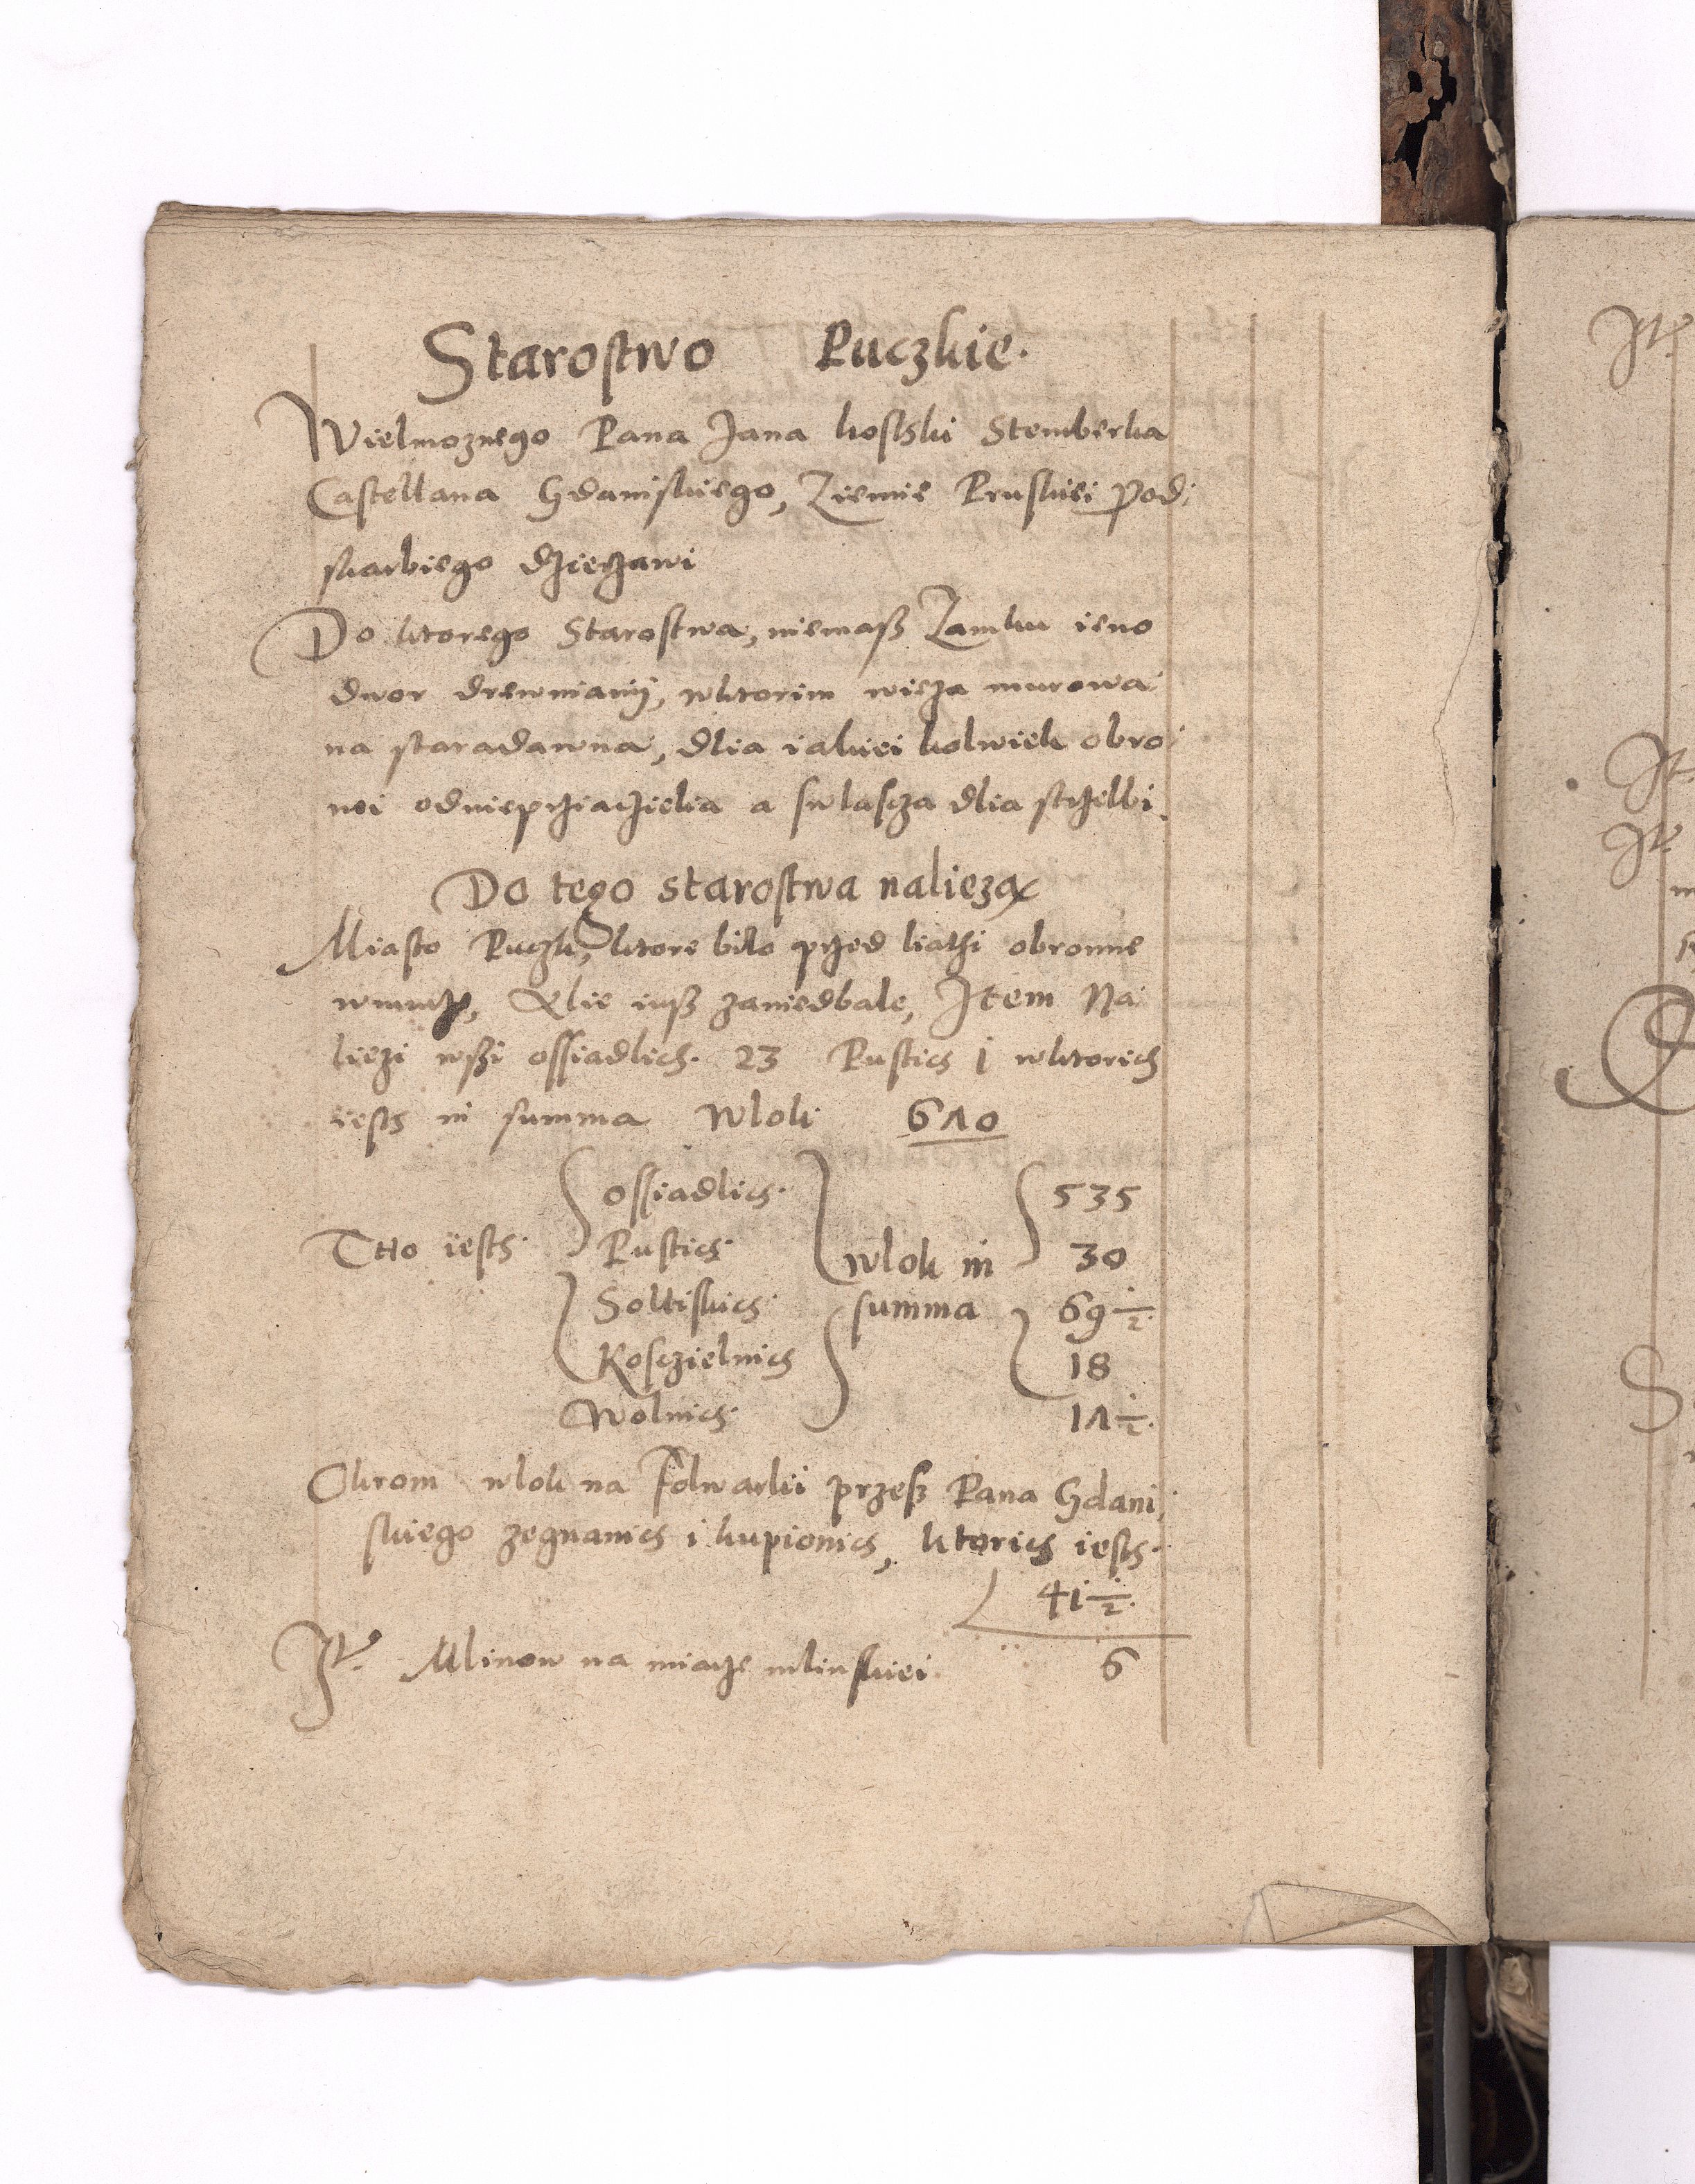 Starostwo Puczkie.
Wielmoznego Pana Jana kostki Stemberka
Castellana Gdaniskiego, Ziemie Pruskiei Pod:
skarbiego dzierzawi
Do ktorego Starostwa, niemasz Zamku ieno
dwor drewnianÿ, wktorim wieza murowa:
na staradawna, dlia iakiei kolwiek obro:
ni odnieprziaczielia a swlascza dlia strzelbi.
Do tego starostwa nalieza
Miasto Puczk, ktore bilo przed liathi obronne
wmurze, Alie iusz zaniedbale, Item Na:
liezi wszi ossiadlich. 23 Pustich 1 wktorich
iesth in summa Wlok 670
Tto iesth.
Ossiadlich.
Pustich.
Soltiskich.
Kosczielnich
Wolnich.
wlok in
summa
535
30
69 1/2.
18
17 1/2.
Okrom wlok na folwarki przesz Pana Gdani:
skiego zegnanich i kupionich, ktorich iesth.
41 1/2.
It. Mlinow na miarze mlinskiei. 6
It.
It.
It.